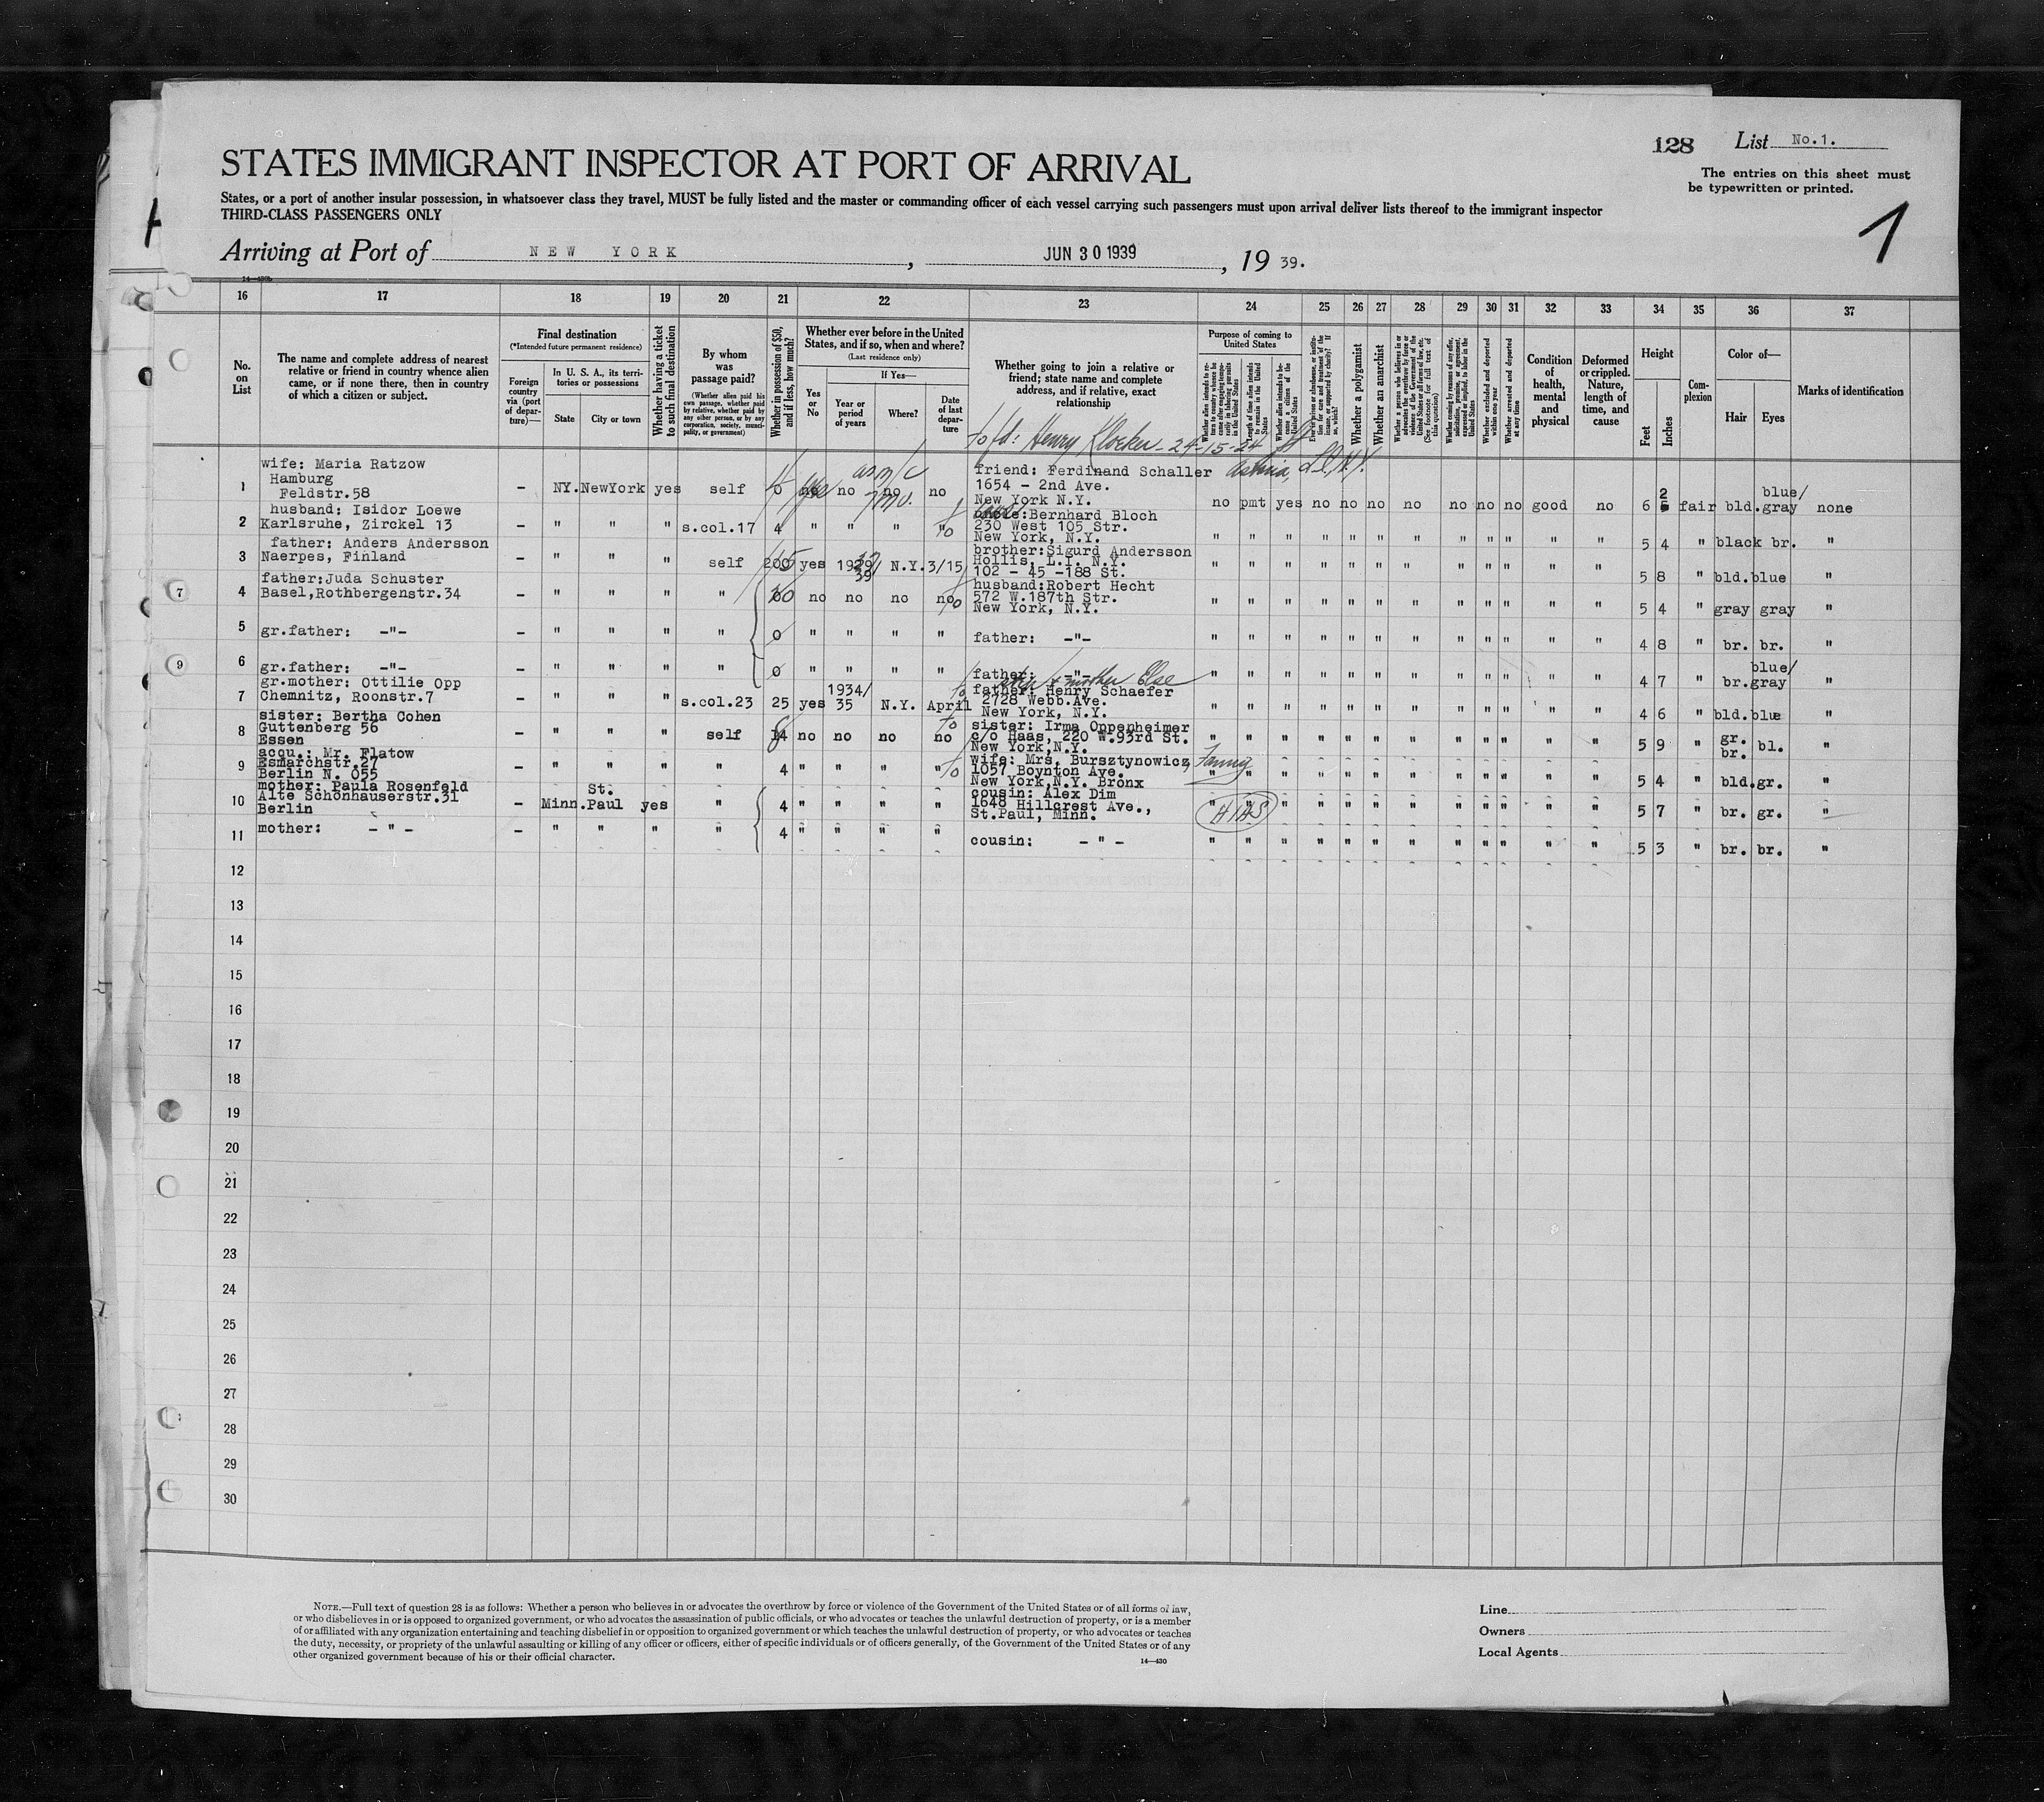 128 List No.1.
STATES IMMIGRANT INSPECTOR AT PORT OF ARRIVAL
The entries on this sheet must
be typewritten or printed.
States, or a port of another insular possession, in whatsoever class they travel, MUST be fully listed and the master or commanding officer of each vessel carrying such passengers must upon arrival deliver lists thereof to the immigrant inspector
THIRD-CLASS PASSENGERS ONLY
1
Arriving at Port of NEW YORK, JUN 30 1939, 19 39.
16 17 18 19 20 21 22 23 24 25 26 27 28 29 30 31 32 33 34 35 36 37
No. on List
The name and complete address of nearest relative or friend in country whence alien came, or if none there, then in country of which a citizen or subject.
Final destination
(*Intended future permanent residence)
Foreign country via (port of departure)—
In U. S. A., its territories or possessions
State City or town
Whether having a ticket to such final destination
By whom was passage paid?
(Whether alien paid his own passage, whether paid by relative, whether paid by any other person, or by any corporation, society, municipality, or government)
Whether in possession of $50, and if less, how much?
Whether ever before in the United States, and if so, when and where?
(Last residence only)
Yes or No
If Yes—
Year or period of years
Where?
Date of last departure
Whether going to join a relative or friend; state name and complete address, and if relative, exact relationship
Purpose of coming to United States
Whether a polygamist
Whether an anarchist
Condition of health, mental and physical
Deformed or crippled. Nature, length of time, and cause
Height
Feet Inches
Complexion
Color of—
Hair Eyes
Marks of identification
to fd: Henry Klocker - 24-15-24 St
Astoria, L.I., N.Y.
1 wife: Maria Ratzow Hamburg Feldstr.58 - NY. NewYork yes self yes no no no friend: Ferdinand Schaller 1654 - 2nd Ave. New York N.Y. no pmt yes no no no no no no no good no 6 2 fair bld. blue/gray none
2 husband: Isidor Loewe Karlsruhe, Zirckel 13 - " " " s.col.17 4 " " " " Bernhard Bloch 230 West 105 Str. New York, N.Y. " " " " " " " " " " " " 5 4 " black br. "
3 father: Anders Andersson Naerpes, Finland - " " " self yes 1929/39 N.Y. 3/15 brother: Sigurd Andersson Hollis, L.I. N.Y. 102 - 45 -188 St. " " " " " " " " " " " " 5 8 " bld. blue "
4 father: Juda Schuster Basel, Rothbergenstr.34 - " " " " no no no no husband: Robert Hecht 572 W.187th Str. New York, N.Y. " " " " " " " " " " " " 5 4 " gray gray "
5 gr.father: -"- - " " " " 0 " " " " father: -"- " " " " " " " " " " " " 4 8 " br. br. "
6 gr.father: -"- - " " " " 0 " " " " father: -"- " " " " " " " " " " " " 4 7 " br. blue/gray "
7 gr.mother: Ottilie Opp Chemnitz, Roonstr.7 - " " " s.col.23 25 yes 1934/35 N.Y. April father: Henry Schaefer & mother Else 2728 Webb.Ave. New York, N.Y. " " " " " " " " " " " " 4 6 " bld. blue "
8 sister: Bertha Cohen Guttenberg 56 Essen - " " " self 14 no no no no sister: Irma Oppenheimer c/o Haas, 220 W.93rd St. New York, N.Y. " " " " " " " " " " " " 5 9 " gr. br. bl. "
9 acqu.: Mr. Flatow Esmarchstr.27 Berlin N. 055 - " " " " 4 " " " " wife: Mrs. Bursztynowicz, Fanny 1057 Boynton Ave. New York, N.Y. Bronx " " " " " " " " " " " " 5 4 " bld. gr. "
10 mother: Paula Rosenfeld Alte Schönhauserstr.31 Berlin - Minn. St. Paul yes " 4 " " " " cousin: Alex Dim 1648 Hillcrest Ave., St.Paul, Minn. HIAS " " " " " " " " " " " " 5 7 " br. gr. "
11 mother: - " - - " " " " 4 " " " " cousin: - " - " " " " " " " " " " " " 5 3 " br. br. "
12
13
14
15
16
17
18
19
20
21
22
23
24
25
26
27
28
29
30
NOTE.—Full text of question 28 is as follows: Whether a person who believes in or advocates the overthrow by force or violence of the Government of the United States or of all forms of law,
or who disbelieves in or is opposed to organized government, or who advocates the assassination of public officials, or who advocates or teaches the unlawful destruction of property, or is a member
of or affiliated with any organization entertaining and teaching disbelief in or opposition to organized government or which teaches the unlawful destruction of property, or who advocates or teaches
the duty, necessity, or propriety of the unlawful assaulting or killing of any officer or officers, either of specific individuals or of officers generally, of the Government of the United States or of any
other organized government because of his or their official character.
14—430
Line
Owners
Local Agents